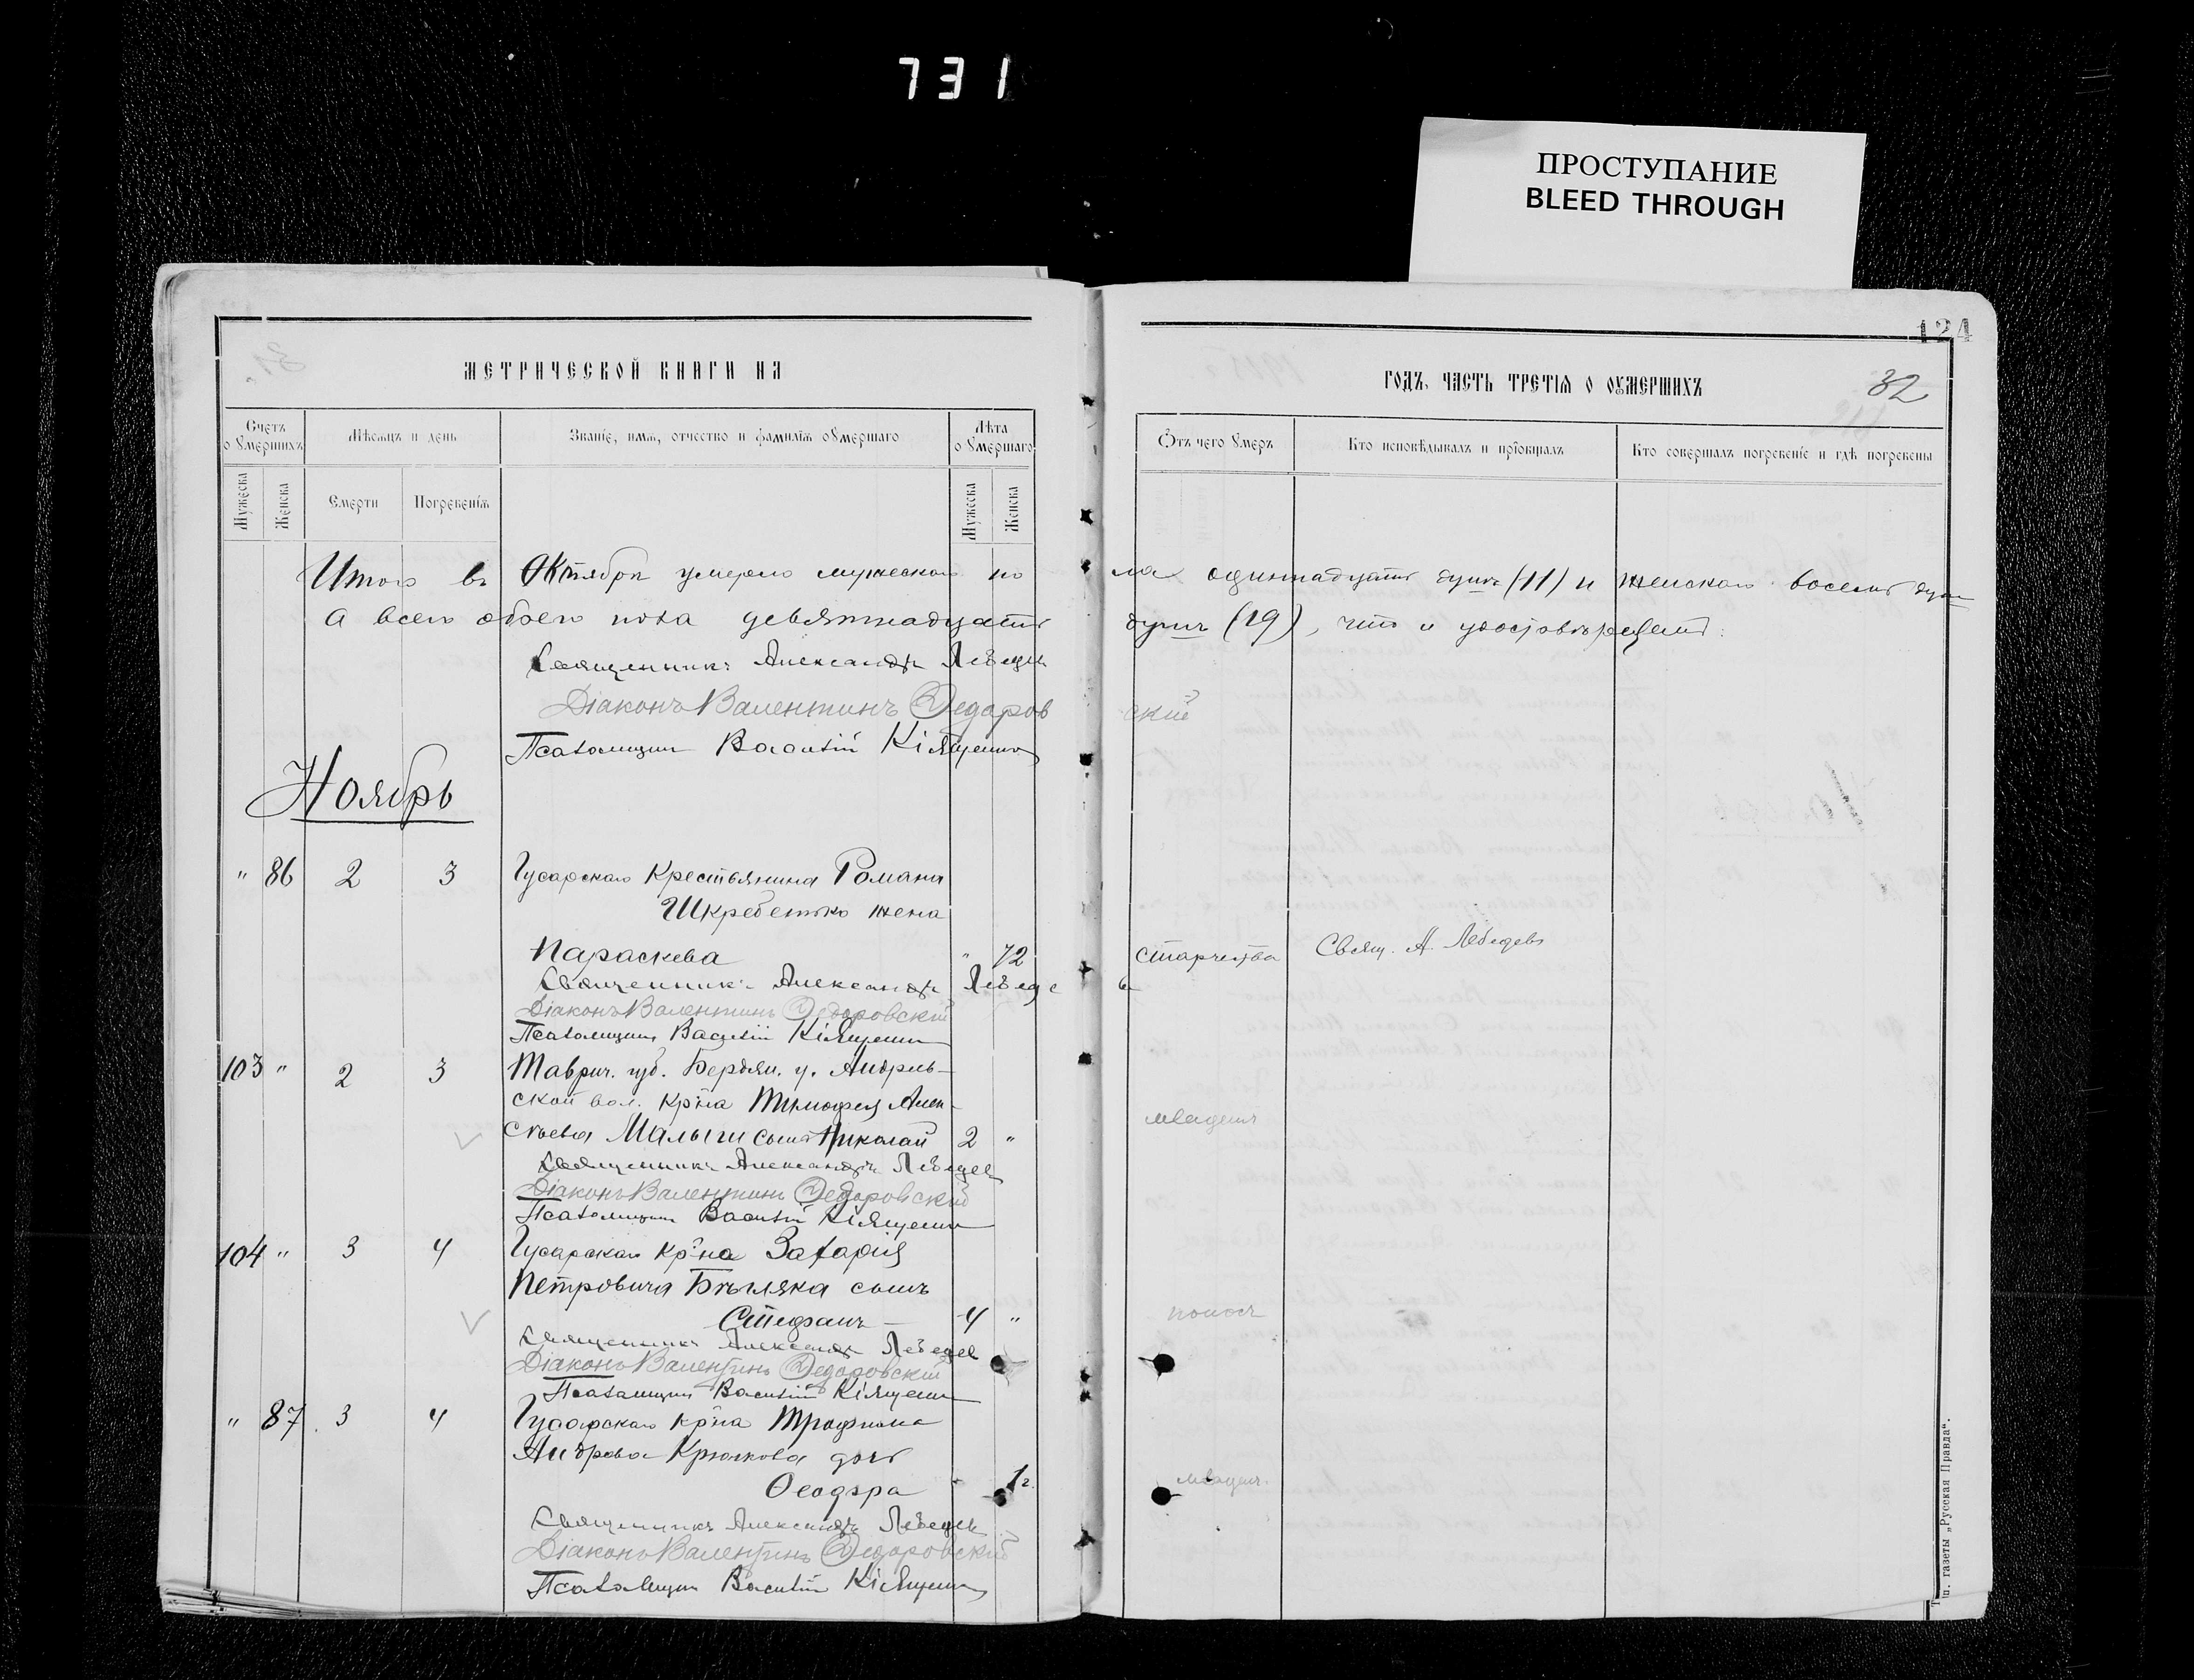 731
ПРОСТУПАНИЕ
BLEED THROUGH
МЕТРИЧЕСКОЙ КНИГИ НА
Счетъ оумершихъ
Мѣсяцъ и день
Званіе, имя, отчество и фамилія оумершаго
Лѣта оумершаго
Мужеска
Женска
Смерти
Погребенія
Мужеска
Женска
Итого въ Октябрѣ умерло мужескаго по
а всего обоего пола девятнадцать
Священникъ Александръ Лебедевъ
Діаконъ Валентинъ Федоров
Псаломщикъ Василій
Ноябрь
" 86 2 3 Гусарскаго крестьянина Романа
Шкребетько жена
Параскева " 72
Священникъ Александръ Лебеде
Діаконъ Валентинъ Федоровскій
Псаломщикъ Василій
103 " 2 3 Таврич. губ. Бердян. у. Андреев-
ской вол. кр-на Тимофея Алек-
сѣева Малыги сынъ Николай 2 "
Священникъ Александръ Лебедев
Діаконъ Валентинъ Федоровскій
Псаломщикъ Василій
104 " 3 4 Гусарскаго кр-на Захарія
Петровича Бѣляка сынъ
Стефанъ 4 "
Священникъ Александръ Лебедев
Діаконъ Валентинъ Федоровскій
Псаломщикъ Василій
" 87 3 4 Гусарскаго кр-на Трофима
Андреева Крючкова дочь
Ѳеодора " 1 г.
Священникъ Александръ Лебедевъ
Діаконъ Валентинъ Федоровскій
Псаломщикъ Василій
124
ГОДЪ, ЧАСТЬ ТРЕТІЯ О ОУМЕРШИХЪ
32
Отъ чего умеръ
Кто исповѣдывалъ и пріобщалъ
Кто совершалъ погребеніе и гдѣ погребены
ла одиннадцать душъ (11) и женскаго восемь душ
душъ (19), что и удостовѣряемъ:
скій
старчества Свящ. А. Лебедевъ
въ
младенч.
поносъ
младенч.
Тип. газеты „Русская Правда“.